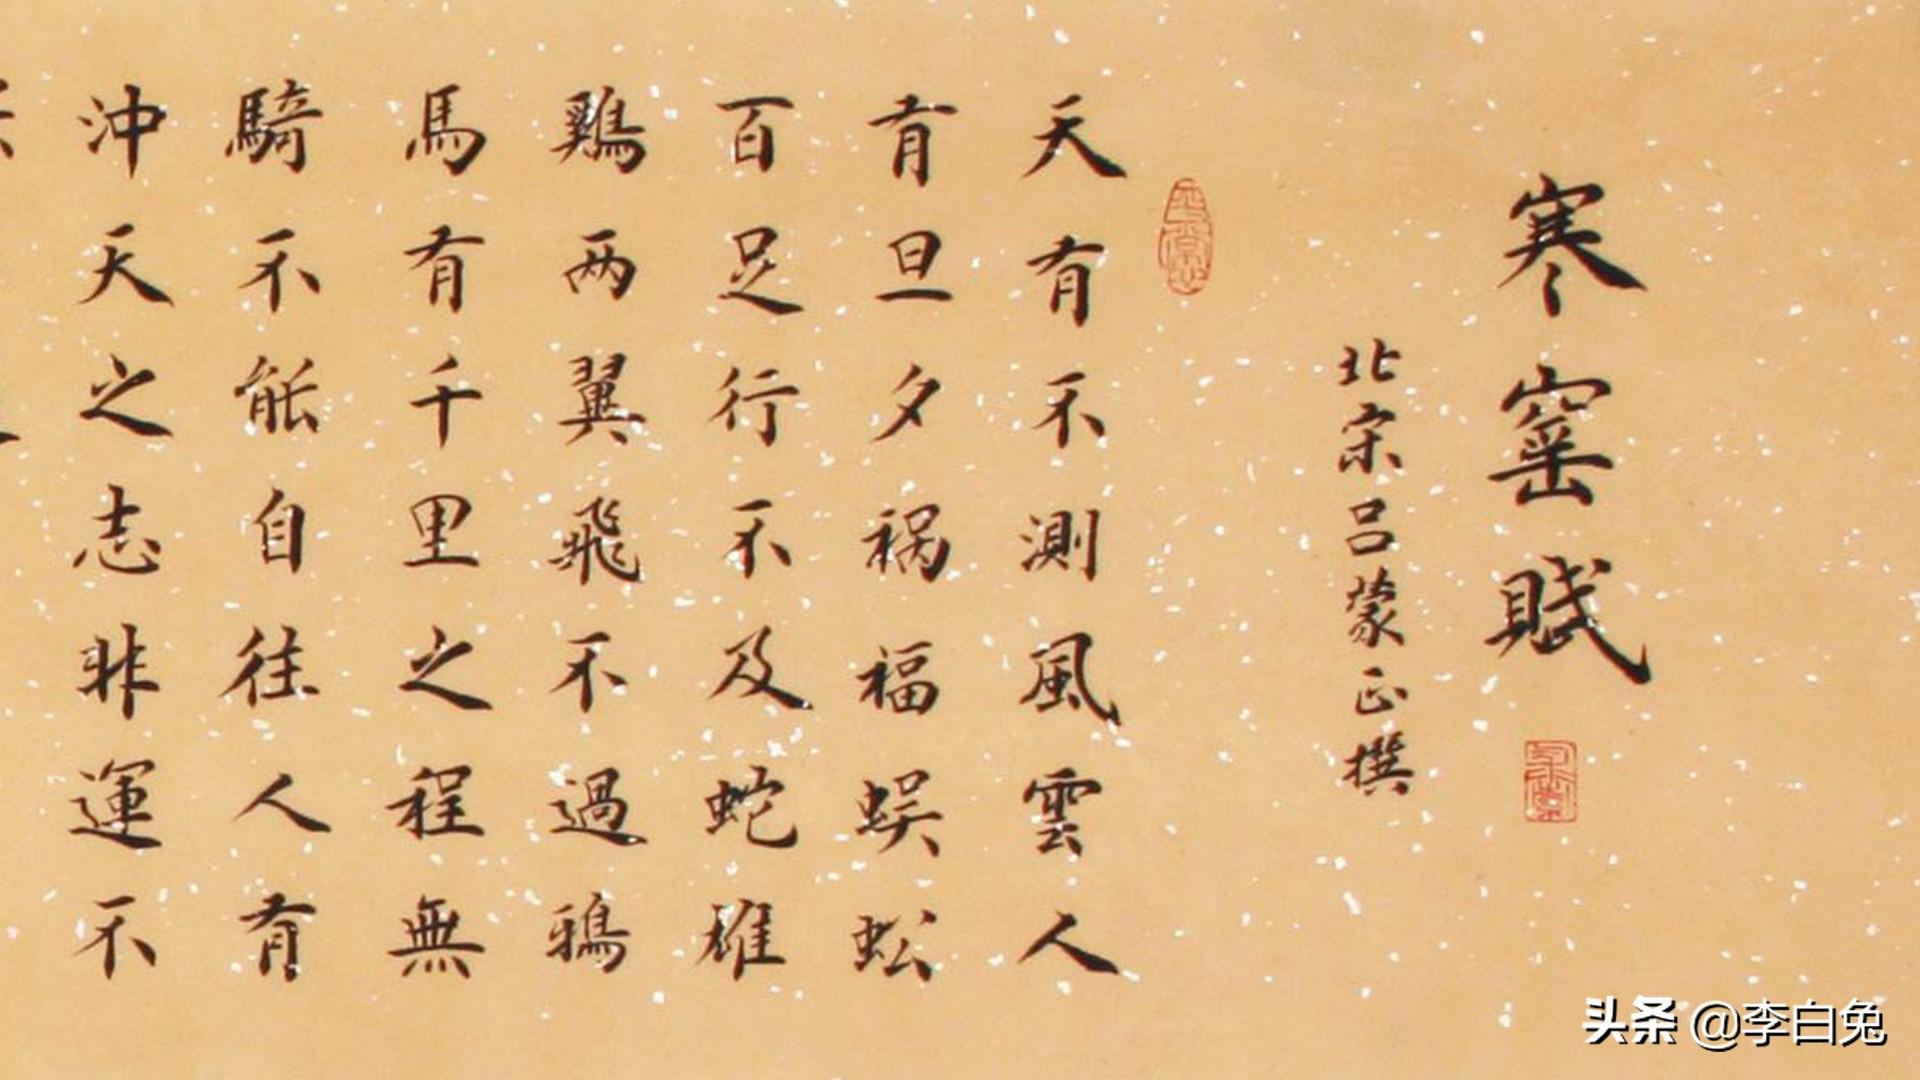 寒窯賦
北宋吕蒙正撰
天有不測風雲人
有旦夕祸福蜈蚣
百足行不及蛇雄
鷄两翼飛不過鴉
馬有千里之程無
騎不能自往人有
沖天之志非運不
头条 @李白兔